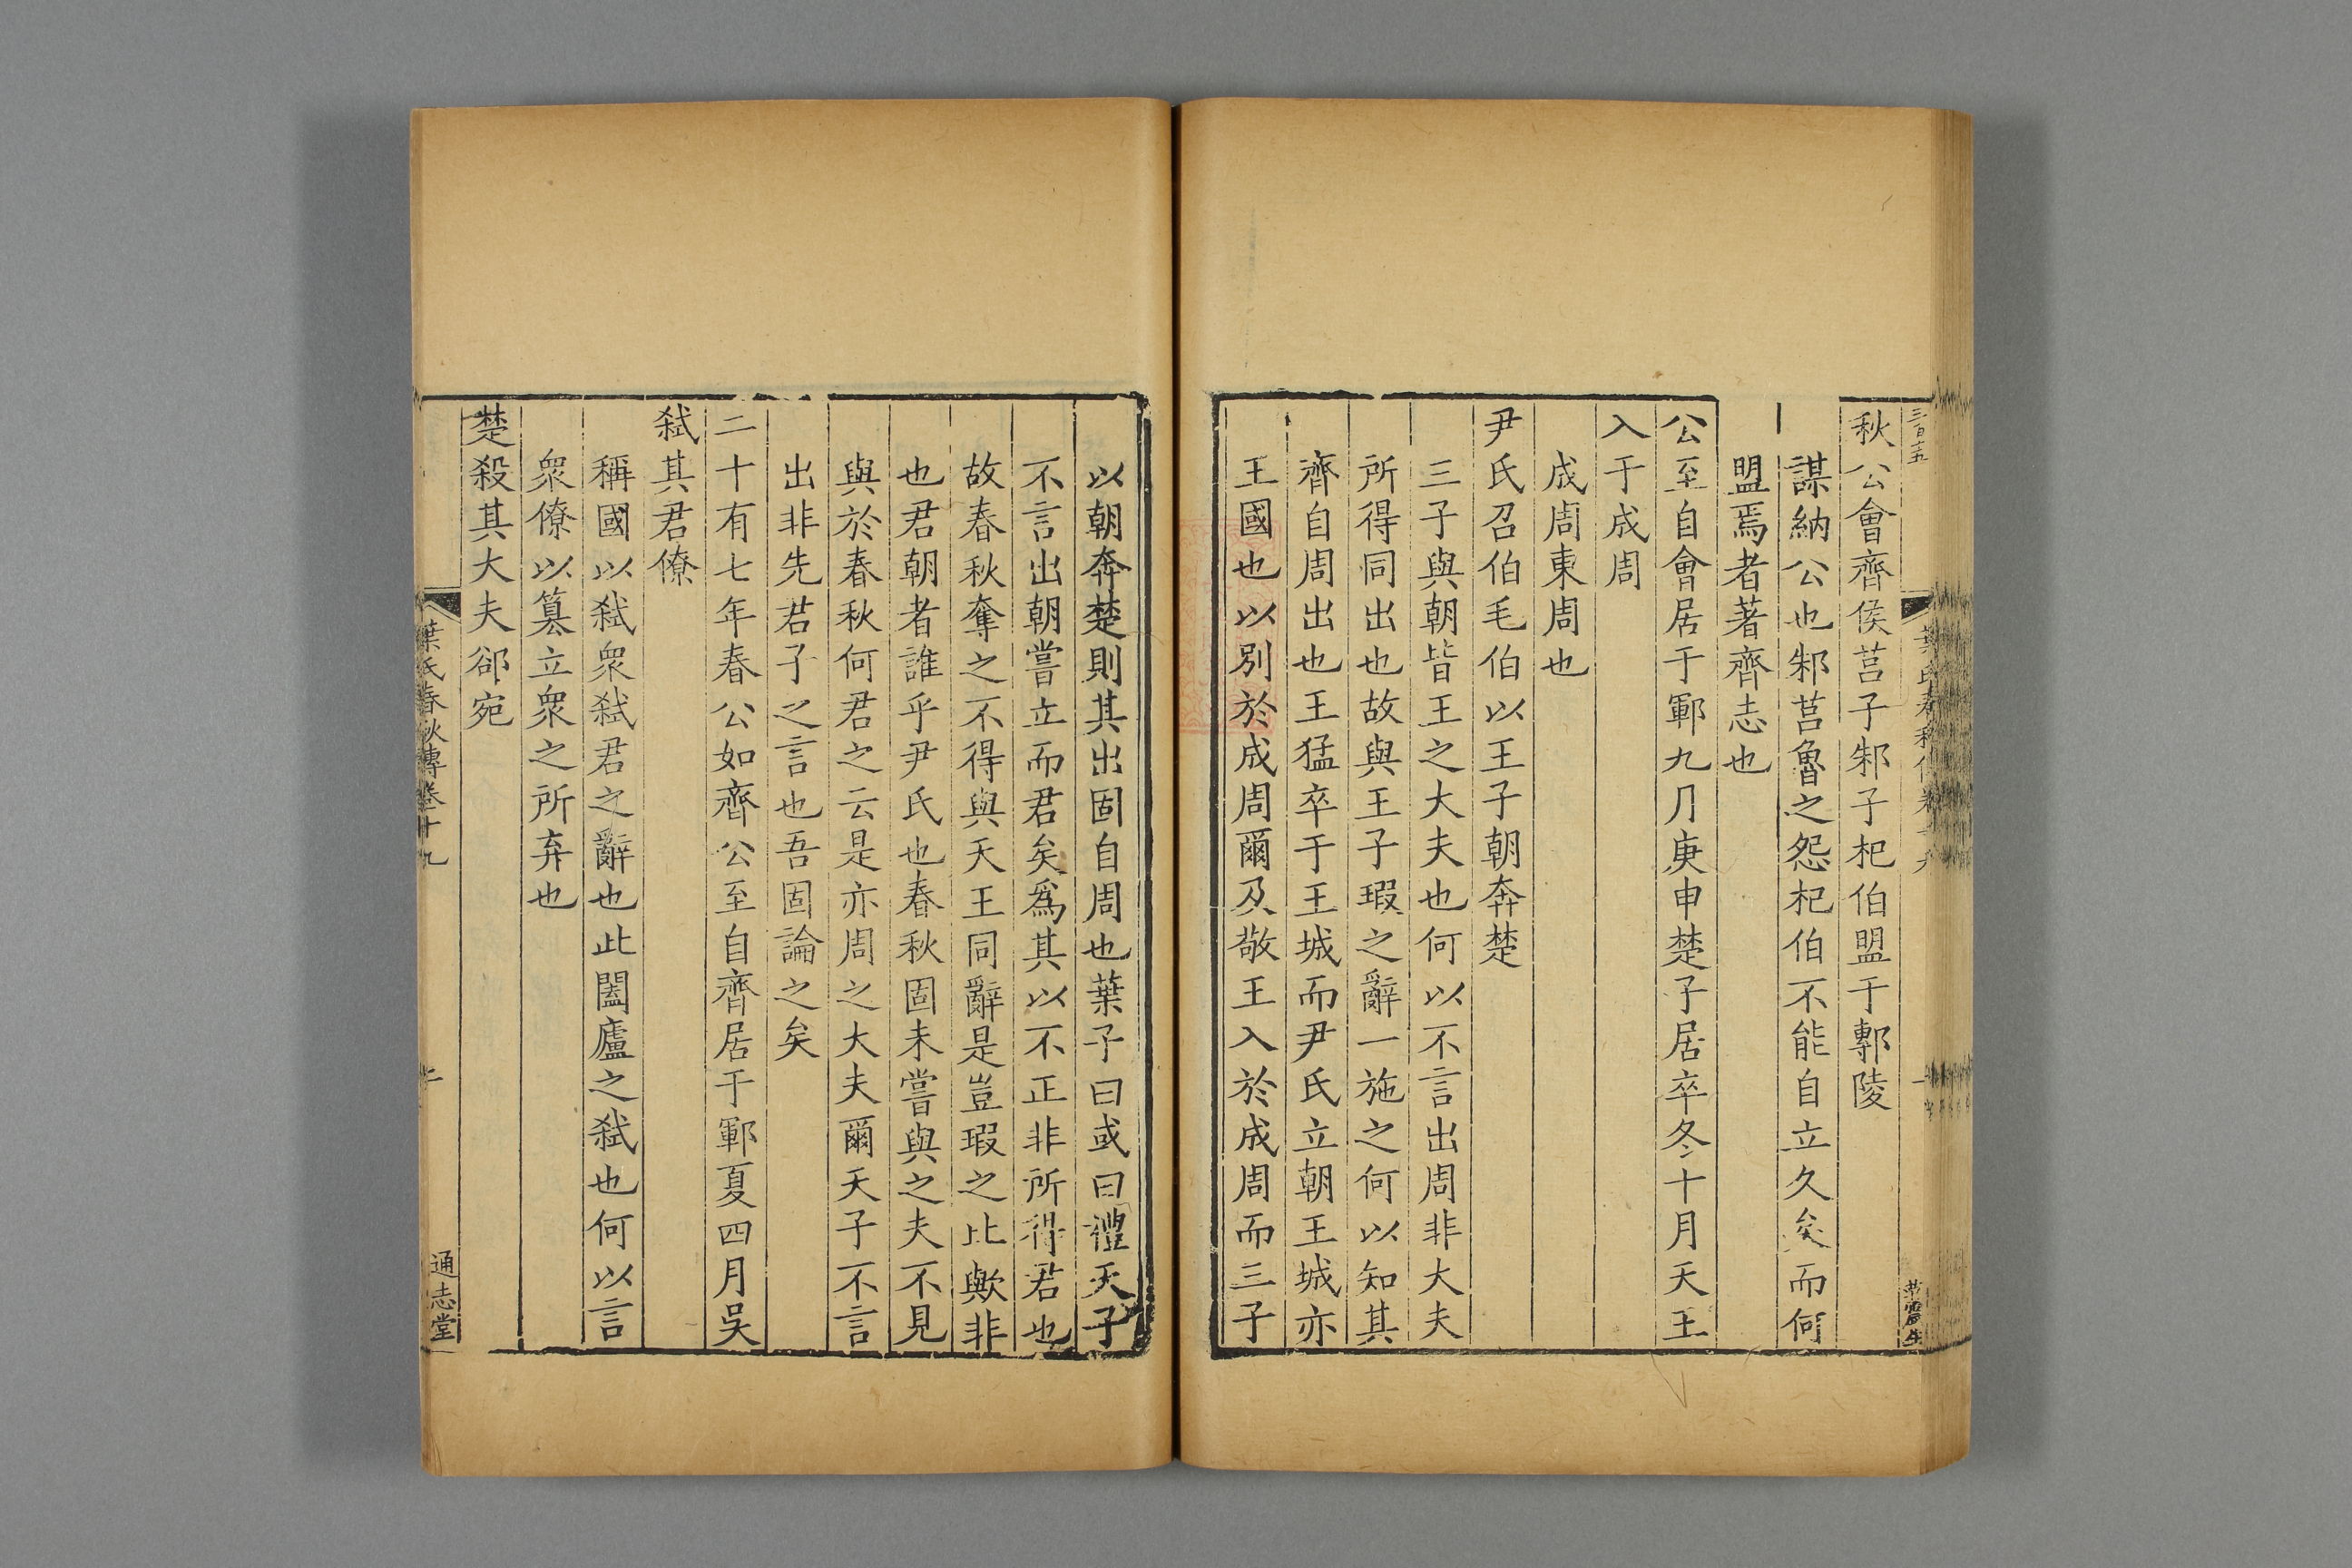 秋公會齊侯莒子邾子杞伯盟于鄟陵
謀納公也邾莒魯之怨杞伯不能自立久矣而何
盟焉者著齊志也
公至自會居于鄆九月庚申楚子居卒冬十月天王
入于成周
成周東周也
尹氏召伯毛伯以王子朝奔楚
三子與朝皆王之大夫也何以不言出周非大夫
所得同出也故與王子瑕之辭一施之何以知其
齊自周出也王猛卒于王城而尹氏立朝王城亦
王國也以別於成周爾及敬王入於成周而三子
以朝奔楚則其出固自周也葉子曰或曰禮天子
不言出朝嘗立而君矣爲其以不正非所得君也
故春秋奪之不得與天王同辭是豈瑕之比歟非
也君朝者誰乎尹氏也春秋固未嘗與之夫不見
與於春秋何君之云是亦周之大夫爾天子不言
出非先君子之言也吾固論之矣
二十有七年春公如齊公至自齊居于鄆夏四月吳
弑其君僚
稱國以弑衆弑君之辭也此闔廬之弑也何以言
衆僚以簒立衆之所弃也
楚殺其大夫郤宛
葉氏春秋傳卷十九
通志堂